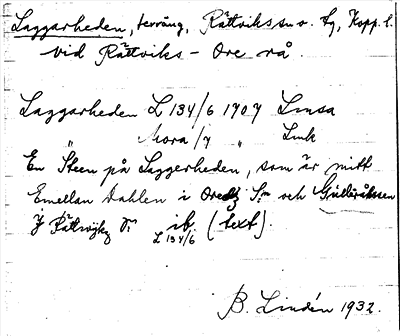 Laggarheden, terräng, Rättviks sn o. tg, Kopp. l.
vid Rättviks - Ore rå.
Laggarheden L 134/6 1707 Lmsa
Mora /7 " Lmk
En Steen på Laggerheden, som är mitt
Emellan Dahlen i Ore Sn och
I Rättwijkz Sn ib. (text).
L 134/6
B. Lindén 1932.